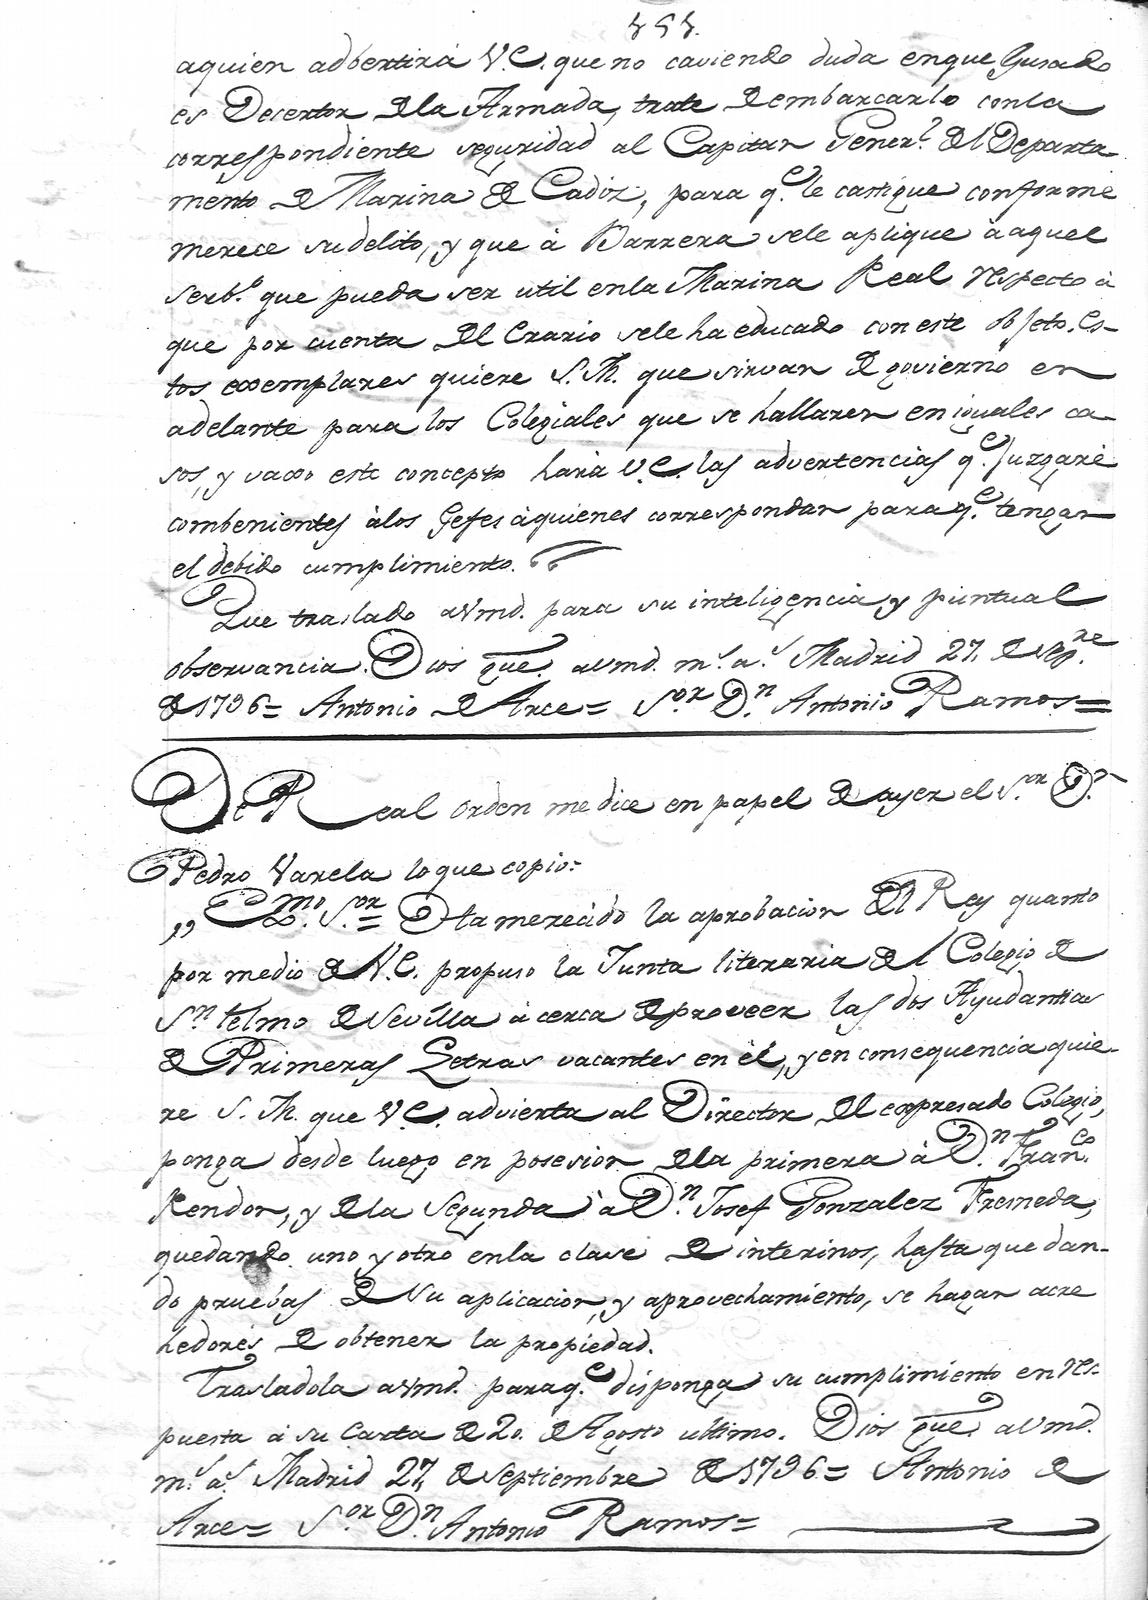 aquien adbertirá V.E. que no caviendo duda enque Jurado
es Desertor dela Armada, trate deembarcarlo conla
correspondiente seguridad al Capitan Gener.l del Departa
mento de Marina de Cadiz, para q.e le castigue conforme
merece sudelito, y que à Barrera sele aplique àaquel
serb.o que pueda ser util enla Marina Real respecto à
que por cuenta del Erario sele ha educado con este objeto. Es-
tos exemplares quiere S.M. que sirvan de govierno en
adelante para los Colegiales que se hallaren en iguales ca-
sos, y vaxo este concepto hará V.E. las advertencias q.e Juzgare
combenientes àlos Gefes àquienes correspondan para q.e tengan
el debido cumplimiento.
Que traslado avmd. para su inteligencia y puntual
observancia. Dios gue. avmd. m.s a.s Madrid 27. de Sep.re
de 1796= Antonio de Arce= S.or D.n Antonio Ramos=
De Real orden me dice en papel de ayer el S.or D.n
Pedro Varela lo que copio:
„ Exmo. S.or= Ha merecido la aprobacion del Rey quanto
por medio de V.E. propuso la Junta literaria de el Colegio de
S.n telmo de Sevilla à cerca de proveer las dos Ayudantias
de Primeras Letras vacantes en èl, y en consequencia quie-
re S.M. que V.E. advierta al Director del expresado Colegio,
ponga desde luego en posesion dela primera à D.n Fran.co
Rendon, y dela Segunda à D.n Josef Gonzalez Fresneda,
quedando uno y otro enla clase de interinos, hasta que dan-
do pruebas de su aplicacion, y aprovechamiento, se hagan acre
hedores de obtener la propiedad.
Trasladola avmd. para q.e disponga su cumplimiento en res-
puesta à su Carta de 20. de Agosto ultimo. Dios gue. avmd.
m.s a.s Madrid 27, de Septiembre de 1796= Antonio de
Arce= S.or D.n Antonio Ramos=